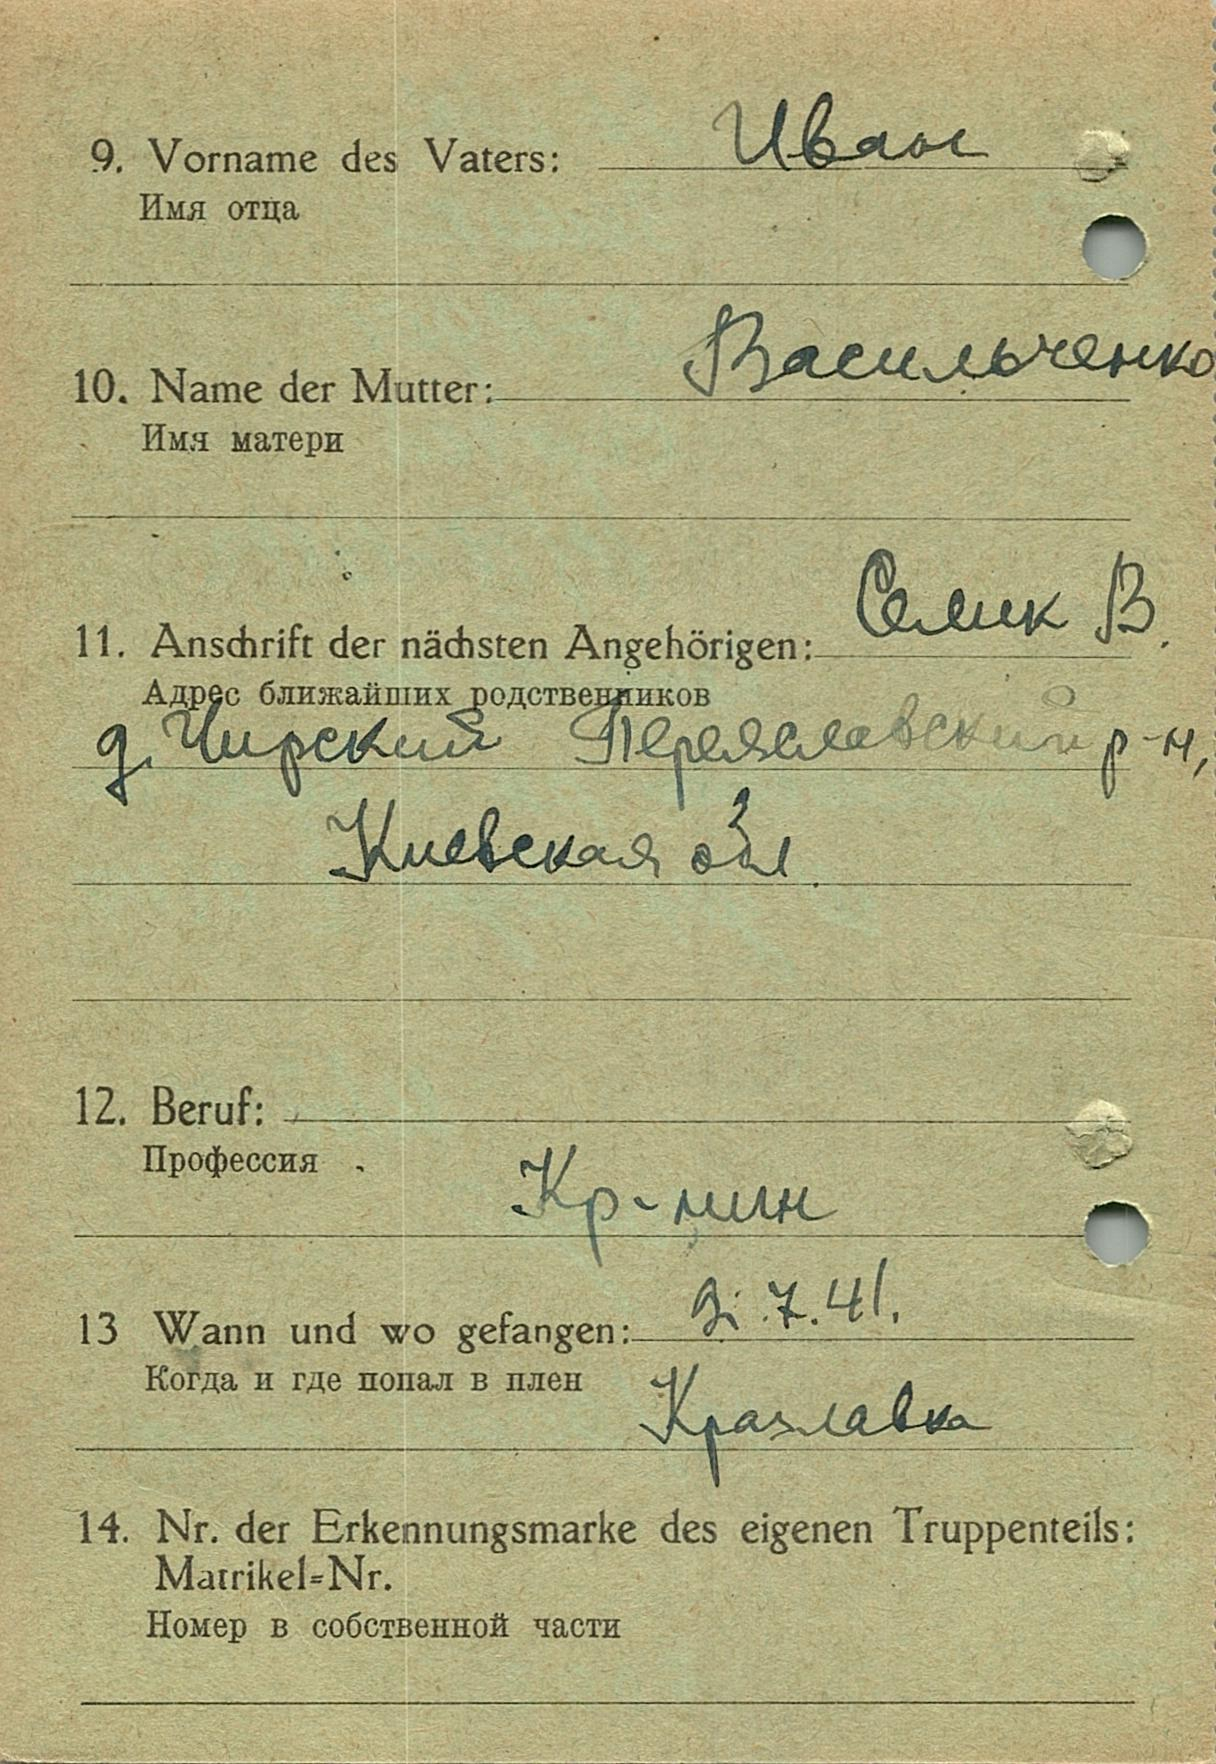 9. Vorname des Vaters: Иван
Имя отца
10. Name der Mutter: Васильченко
Имя матери
11. Anschrift der nächsten Angehörigen: Семик В.
Адрес ближайших родственников
д. Чирский Переяславский р-н,
Киевская обл.
12. Beruf:
Профессия
Кр-нин
13 Wann und wo gefangen: 7.41.
Когда и где попал в плен
Краславка
14. Nr. der Erkennungsmarke des eigenen Truppenteils:
Matrikel=Nr.
Номер в собственной части